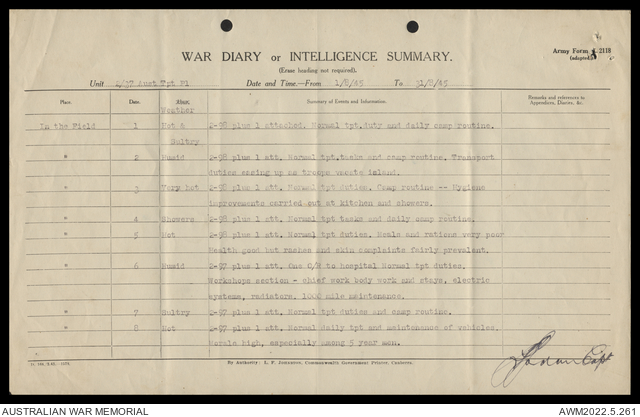 WAR DIARY or INTELLIGENCE SUMMARY.
Army Form C. 2118
(adapted)
(Erase heading not required).
Unit 2/37 Aust Tpt Pl Date and Time.—From 1/8/45 To 31/8/45
Place. Date. Hour. Summary of Events and Information. Remarks and references to Appendices, Diaries, &c.
Weather
In the Field 1 Hot & Sultry 2-98 plus 1 attached. Normal tpt.duty and daily camp routine.
" 2 Humid 2-98 plus 1 att. Normal tpt.tasks and camp routine. Transport
duties easing up as troops vacate island.
" 3 Very hot 2-98 plus 1 att. Normal tpt duties. Camp routine -- Hygiene
improvements carried out at kitchen and showers.
" 4 Showers 2-98 plus 1 att. Normal tpt tasks and daily camp routine.
" 5 Hot 2-98 plus 1 att. Normal tpt duties. Meals and rations very poor
Health good but rashes and skin complaints fairly prevalent.
" 6 Humid 2-97 plus 1 att. One O/R to hospital Normal tpt duties.
Workshops section - chief work body work and stays, electric
systems, radiators. 1000 mile maintenance.
" 7 Sultry 2-97 plus 1 att. Normal tpt duties and camp routine.
" 8 Hot 2-97 plus 1 att. Normal daily tpt and maintenance of vehicles.
Morale high, especially among 5 year men.
Capt
By Authority: L. F. Johnston, Commonwealth Government Printer, Canberra.
AUSTRALIAN WAR MEMORIAL
AWM2022.5.261